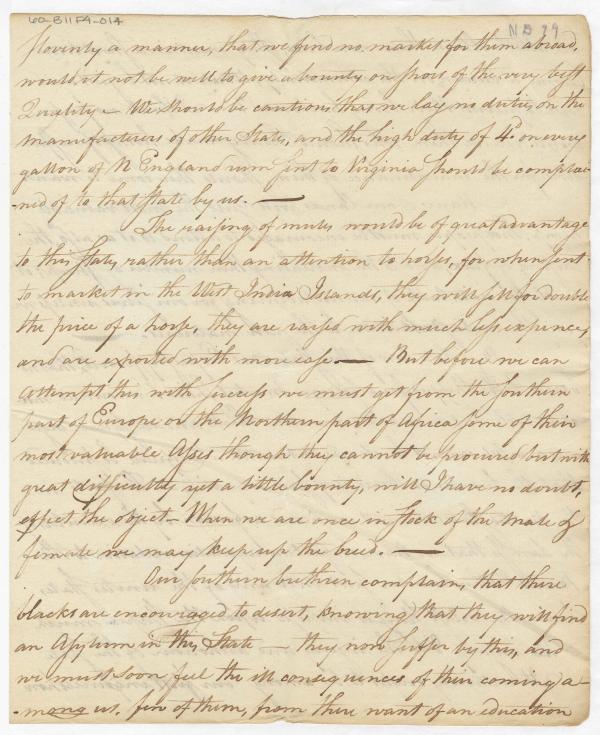 60-B11F4-014
ND 29
slovenly a manner, that we find no market for them abroad,
would it not be well to give a bounty on those of the very best
Quality — We should be cautious that we lay no duties on the
manufacturers of other States, and the high duty of 4d. on every
gallon of N England rum sent to Virginia should be complai-
-ned of to that State by us. —
The raising of mules would be of great advantage
to this State, rather than an attention to horses, for when sent
to market in the West India Islands, they will sell for double
the price of a horse, they are raised with much less expence,
and are exported with more ease. — But before we can
attempt this with success we must get from the southern
part of Europe or the Northern part of Africa some of their
most valuable Asses though they cannot be procured but with
great difficulty yet a little bounty, will I have no doubt,
effect the object — When we are once in stock of the male &
female we may keep up the breed. —
Our southern brethren complain, that there
blacks are encouraged to desert, knowing that they will find
an Asylum in this State — they now suffer by this, and
we must soon feel the ill consequences of their coming a-
-mong us. few of them, from there want of an education